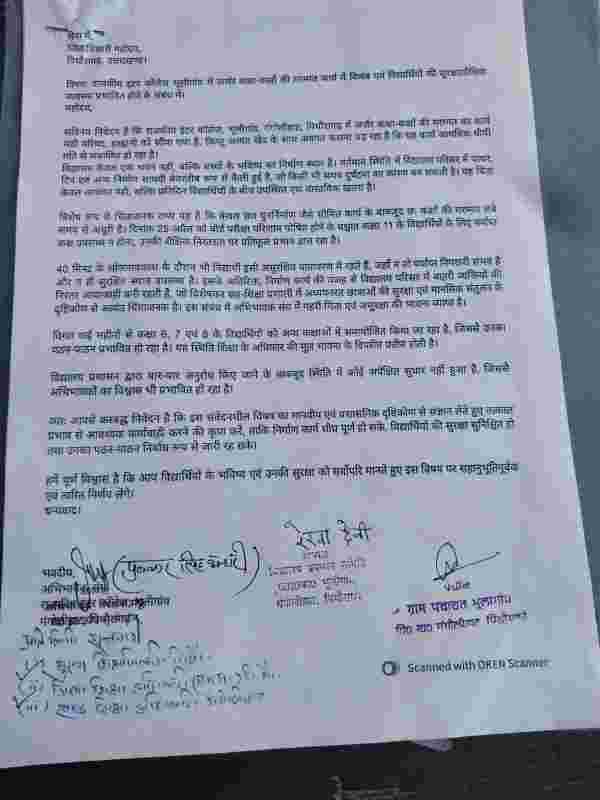 सेवा में,
जिलाधिकारी महोदय,
पिथौरागढ़, उत्तराखण्ड।
विषय: राजकीय इंटर कॉलेज भूलीगांव में जर्जर कक्षा-कक्षों की मरम्मत कार्य में विलंब एवं विद्यार्थियों की सुरक्षा/शैक्षिक
व्यवस्था प्रभावित होने के संबंध में।
महोदय,
सविनय निवेदन है कि राजकीय इंटर कॉलेज, भूलीगांव, गंगोलीहाट, पिथौरागढ़ में जर्जर कक्षा-कक्षों की मरम्मत का कार्य
मंडी परिषद, हल्द्वानी को सौंपा गया है, किन्तु अत्यंत खेद के साथ अवगत कराना पड़ रहा है कि यह कार्य अत्यधिक धीमी
गति से संचालित हो रहा है।
विद्यालय केवल एक भवन नहीं, बल्कि बच्चों के भविष्य का निर्माण स्थल है। वर्तमान स्थिति में विद्यालय परिसर में पत्थर,
टिन एवं अन्य निर्माण सामग्री बेतरतीब रूप से फैली हुई है, जो किसी भी समय दुर्घटना का कारण बन सकती है। यह चिंता
केवल आशंका नहीं, बल्कि प्रतिदिन विद्यार्थियों के बीच उपस्थित एक वास्तविक खतरा है।
विशेष रूप से चिंताजनक तथ्य यह है कि केवल छत पुनर्निर्माण जैसे सीमित कार्य के बावजूद छः कक्षों की मरम्मत लंबे
समय से अधूरी है। दिनांक 25 अप्रैल को बोर्ड परीक्षा परिणाम घोषित होने के पश्चात कक्षा 11 के विद्यार्थियों के लिए पर्याप्त
कक्ष उपलब्ध न होना, उनकी शैक्षिक निरंतरता पर प्रतिकूल प्रभाव डाल रहा है।
40 मिनट के मध्यावकाश के दौरान भी विद्यार्थी इसी असुरक्षित वातावरण में रहते हैं, जहाँ न तो पर्याप्त निगरानी संभव है
और न ही सुरक्षित स्थान उपलब्ध है। इसके अतिरिक्त, निर्माण कार्य की वजह से विद्यालय परिसर में बाहरी व्यक्तियों की
निरंतर आवाजाही बनी रहती है, जो विशेषकर सह-शिक्षा प्रणाली में अध्ययनरत छात्राओं की सुरक्षा एवं मानसिक संतुलन के
दृष्टिकोण से अत्यंत चिंताजनक है। इस संबंध में अभिभावक संघ में गहरी चिंता एवं असुरक्षा की भावना व्याप्त है।
विगत कई महीनों से कक्षा 6, 7 एवं 8 के विद्यार्थियों को अन्य कक्षाओं में समायोजित किया जा रहा है, जिससे उनका
पठन-पाठन प्रभावित हो रहा है। यह स्थिति शिक्षा के अधिकार की मूल भावना के विपरीत प्रतीत होती है।
विद्यालय प्रशासन द्वारा बार-बार अनुरोध किए जाने के बावजूद स्थिति में कोई अपेक्षित सुधार नहीं हुआ है, जिससे
अभिभावकों का विश्वास भी प्रभावित हो रहा है।
अतः आपसे करबद्ध निवेदन है कि इस संवेदनशील विषय का मानवीय एवं प्रशासनिक दृष्टिकोण से संज्ञान लेते हुए तत्काल
प्रभाव से आवश्यक कार्यवाही करने की कृपा करें, ताकि निर्माण कार्य शीघ्र पूर्ण हो सके, विद्यार्थियों की सुरक्षा सुनिश्चित हो
तथा उनका पठन-पाठन निर्बाध रूप से जारी रह सके।
हमें पूर्ण विश्वास है कि आप विद्यार्थियों के भविष्य एवं उनकी सुरक्षा को सर्वोपरि मानते हुए इस विषय पर सहानुभूतिपूर्वक
एवं त्वरित निर्णय लेंगे।
धन्यवाद।
भवदीय,
रेखा देवी
अध्यक्ष
विद्यालय प्रबन्धन समिति
गंगोलीहाट, पिथौरागढ़
ग्राम पंचायत भूलीगांव
वि० ख० गंगोलीहाट पिथौरागढ़
प्रतिलिपि सूचनार्थ
(i) मुख्य
(ii) जिला शिक्षा अधिकारी
(iii) खण्ड शिक्षा अधिकारी गंगोलीहाट
Scanned with OKEN Scanner